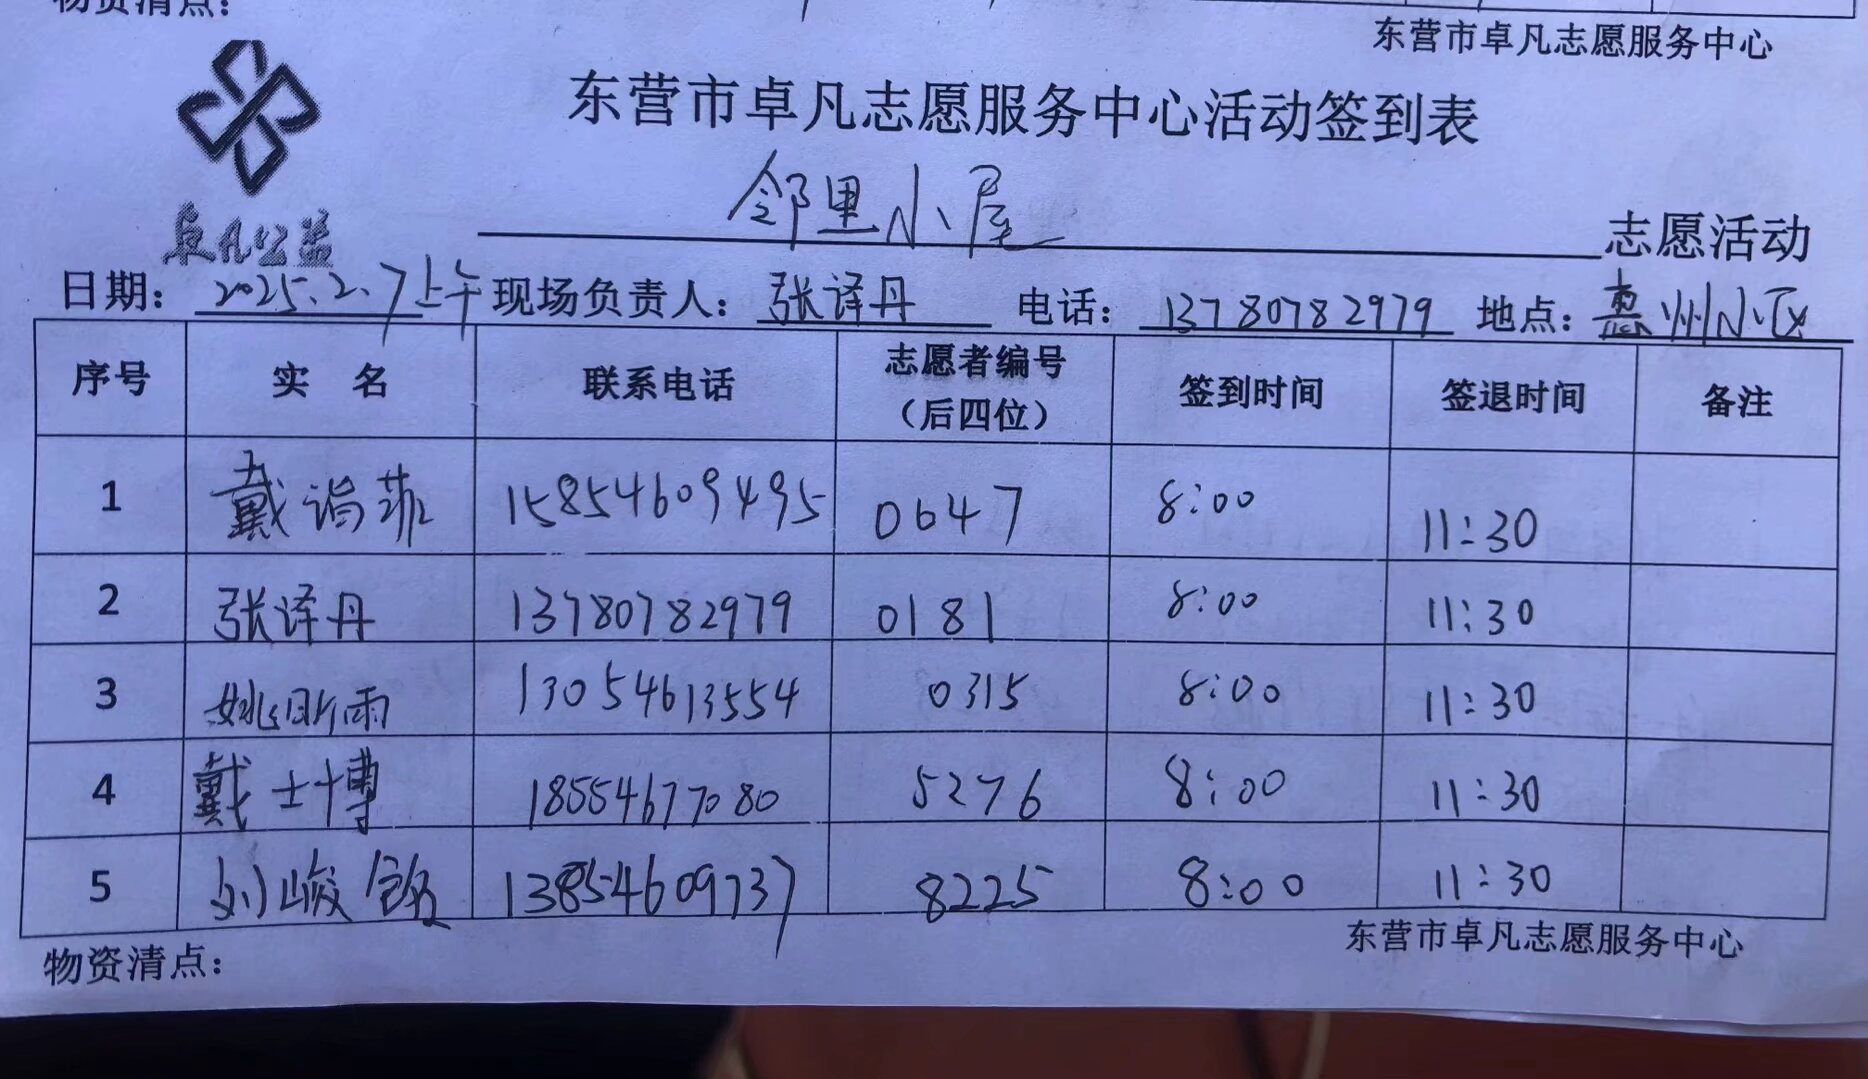 物资清点：
东营市卓凡志愿服务中心
东营市卓凡志愿服务中心活动签到表
卓凡公益
邻里小屋 志愿活动
日期：2025.2.7上午 现场负责人：张译丹 电话：13780782979 地点：惠州小区
序号 实 名 联系电话 志愿者编号（后四位） 签到时间 签退时间 备注
1 戴 15854609495 0647 8:00 11:30
2 张译丹 13780782979 0181 8:00 11:30
3 姚昕雨 13054613554 0315 8:00 11:30
4 戴士博 18554677080 5276 8:00 11:30
5 刘峻 13854609737 8225 8:00 11:30
物资清点：
东营市卓凡志愿服务中心